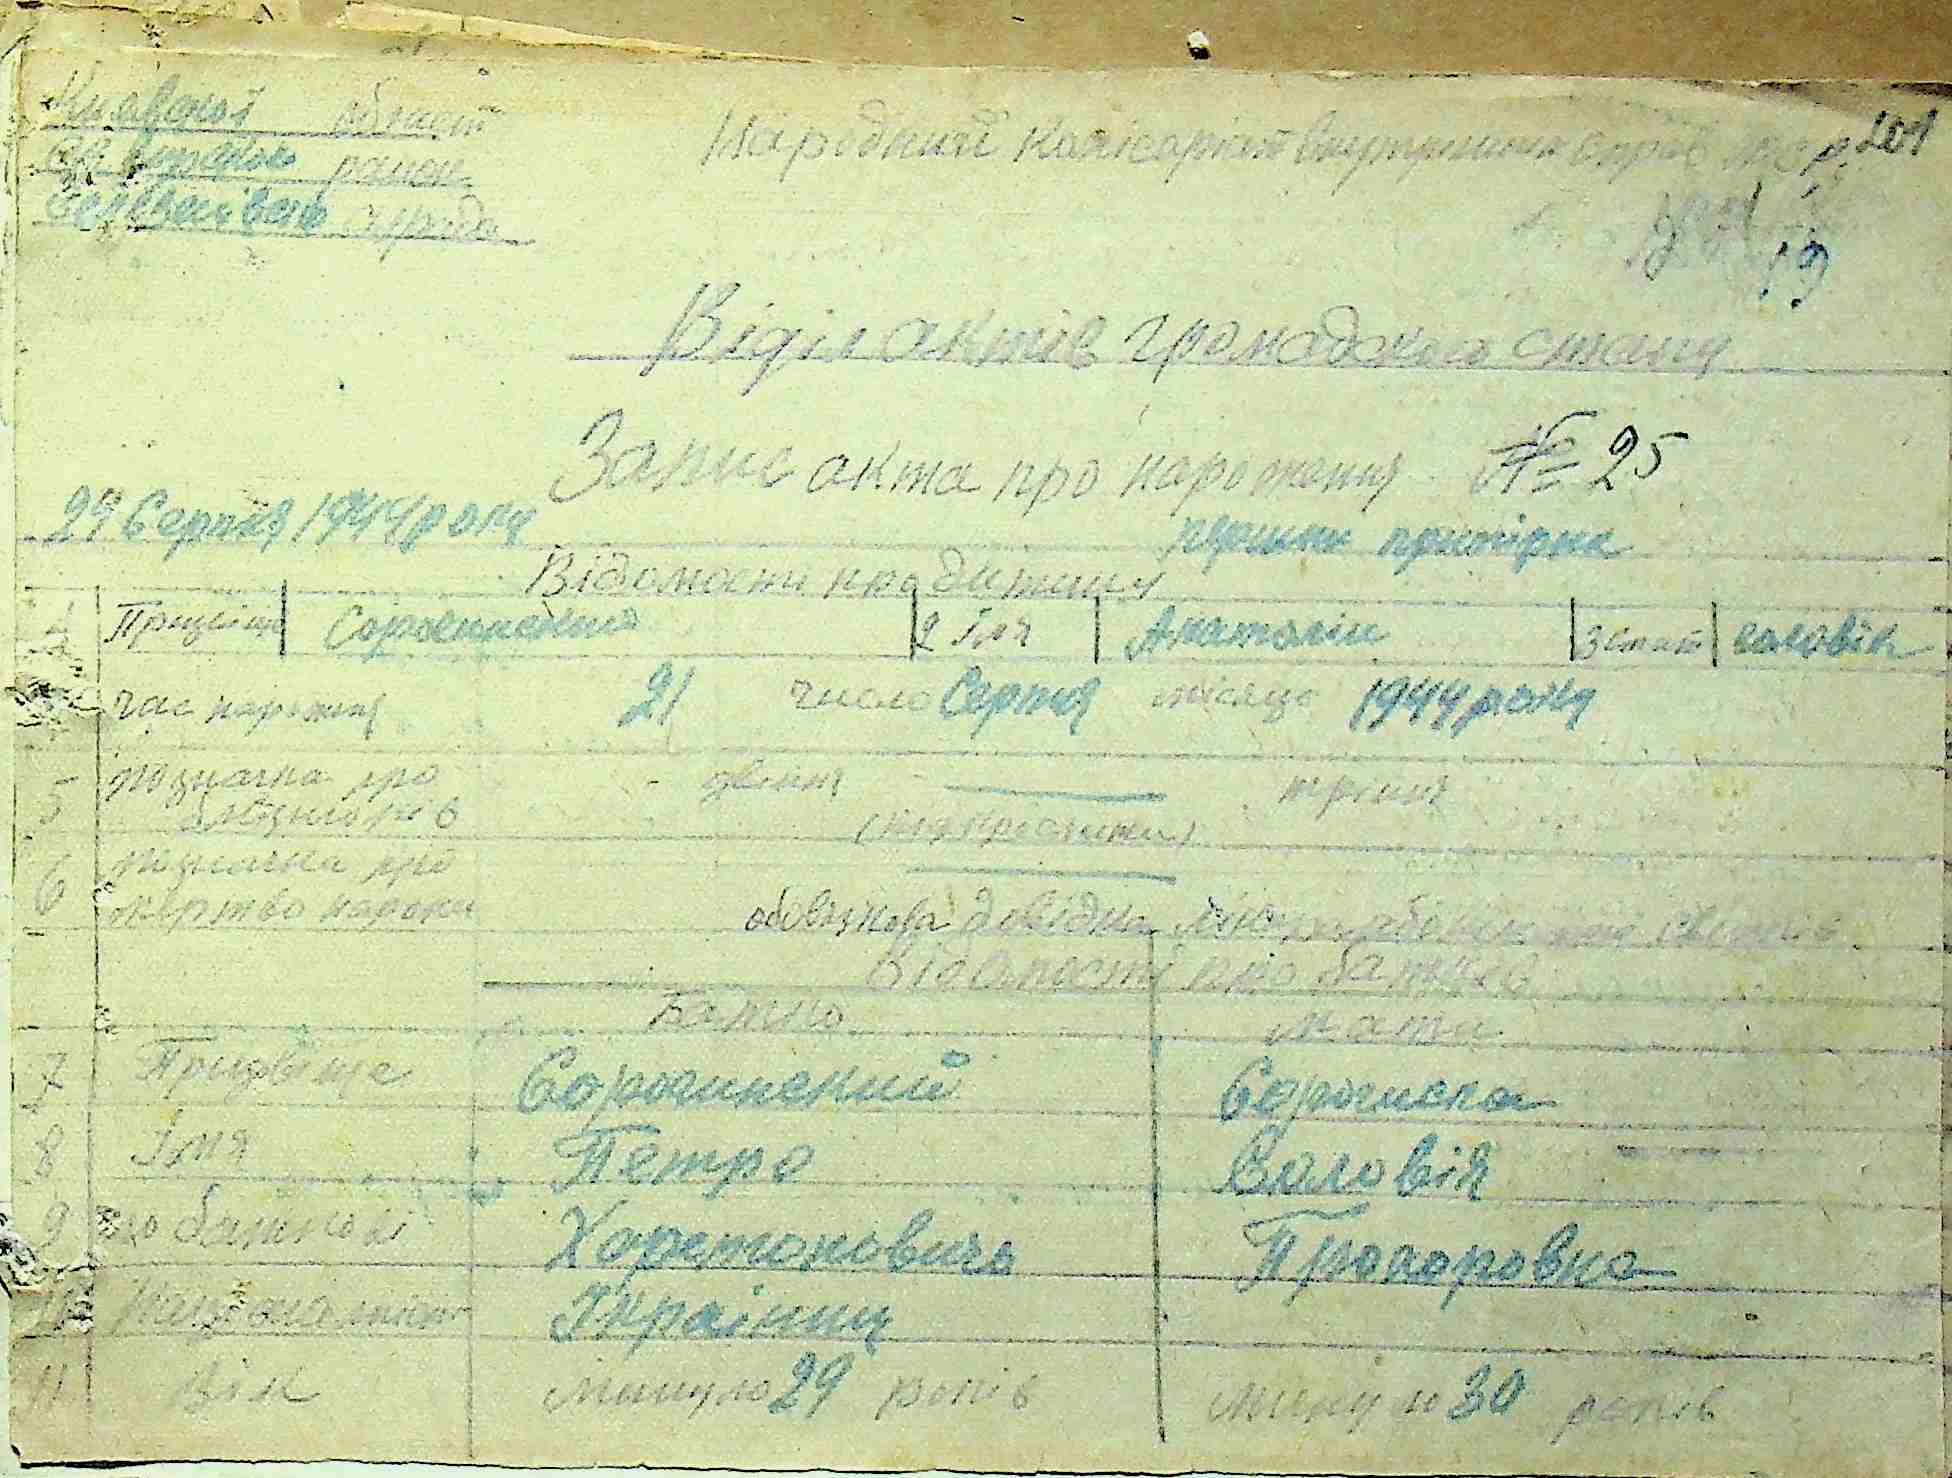 Київської області
район
сільрада
Народний Комісаріат Внутрішніх справ 201
19
Відділ актів громадского стану
Запис акта про нарожения № 25
24 Серпня 1944 року перший примірник
Відомости про дитину
1 Призвіще Сорочинский 2 Імя Анатолій 3 стать чоловік
час нарожня 21 число Серпня місяця 1944 року
5 позначка про близнюків двійня трійня
(підкреслити)
6 позначка про мертво народж
обовязкова довідка
Відомості про батьків
Батько Мати
7 Призвіще Сорочинский Сорочиска
8 Імя Петро Соловія
9 по батькові Харетонович Прохоровна
10 Національність Українці
11 Вік минуло 29 років минуло 30 років